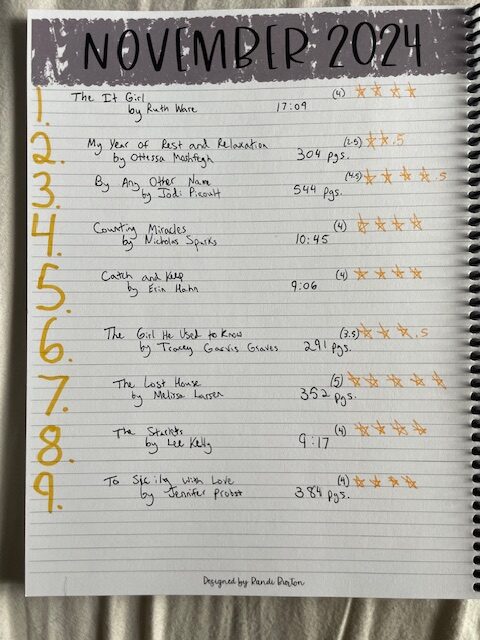 NOVEMBER 2024
1. The It Girl (4) ☆☆☆☆
by Ruth Ware 17:09
2. My Year of Rest and Relaxation (2.5) ☆☆.5
by Ottessa Moshfegh 304 pgs.
3. By Any Other Name (4.5) ☆☆☆☆.5
by Jodi Picoult 544 pgs.
4. Counting Miracles (4) ☆☆☆☆
by Nicholas Sparks 10:45
5. Catch and Keep (4) ☆☆☆☆
by Erin Hahn 9:06
6. The Girl He Used to Know (3.5) ☆☆☆.5
by Tracey Garvis Graves 291 pgs.
7. The Lost House (5) ☆☆☆☆☆
by Melissa Larsen 352 pgs.
8. The Starlets (4) ☆☆☆☆
by Lee Kelly 9:17
9. To Sicily with Love (4) ☆☆☆☆
by Jennifer Probst 384 pgs.
Designed by Randi Burton